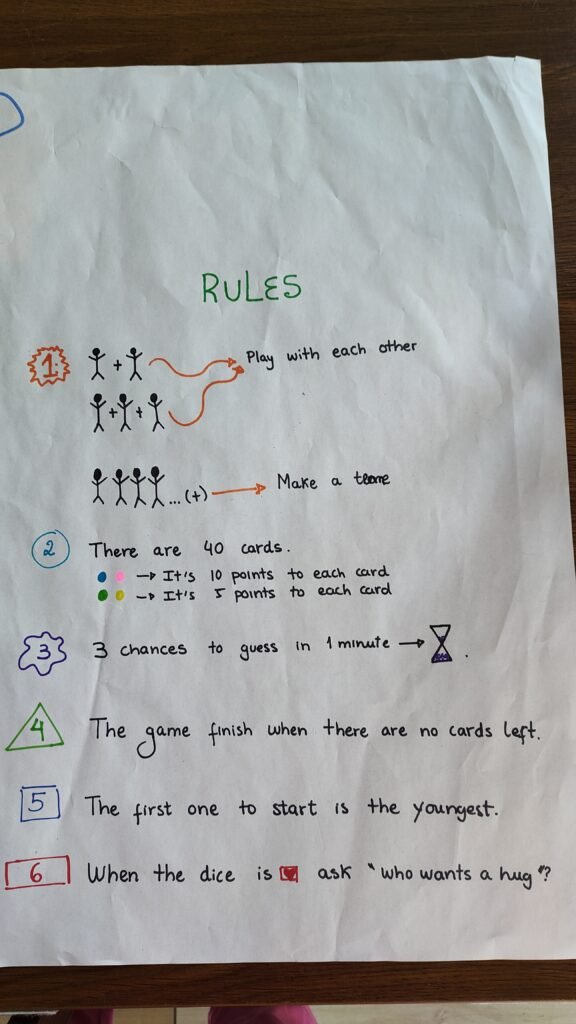 RULES
1 + Play with each other
+ +
...(+) Make a
2 There are 40 cards.
It's 10 points to each card
It's 5 points to each card
3 3 chances to guess in 1 minute .
4 The game finish when there are no cards left.
5 The first one to start is the youngest.
6 When the dice is ask "who wants a hug"?